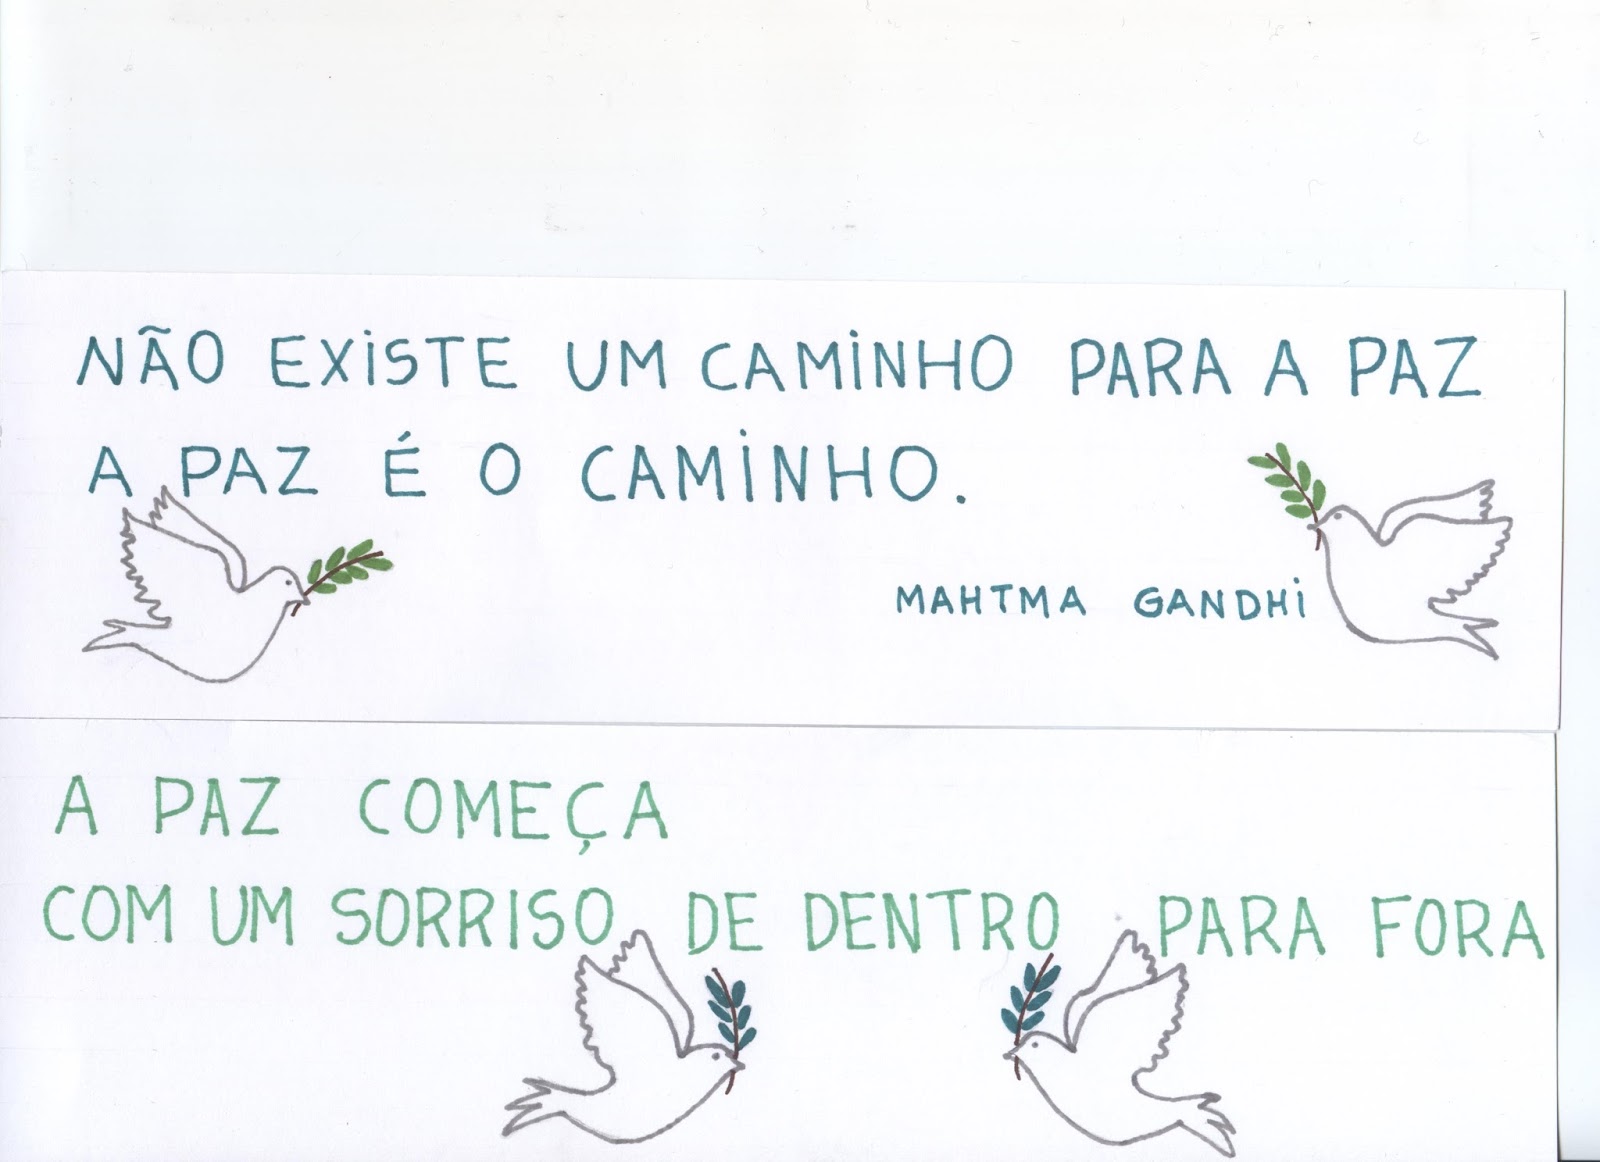 NÃO EXISTE UM CAMINHO PARA A PAZ
A PAZ É O CAMINHO.
MAHTMA GANDHI
A PAZ COMEÇA
COM UM SORRISO DE DENTRO PARA FORA